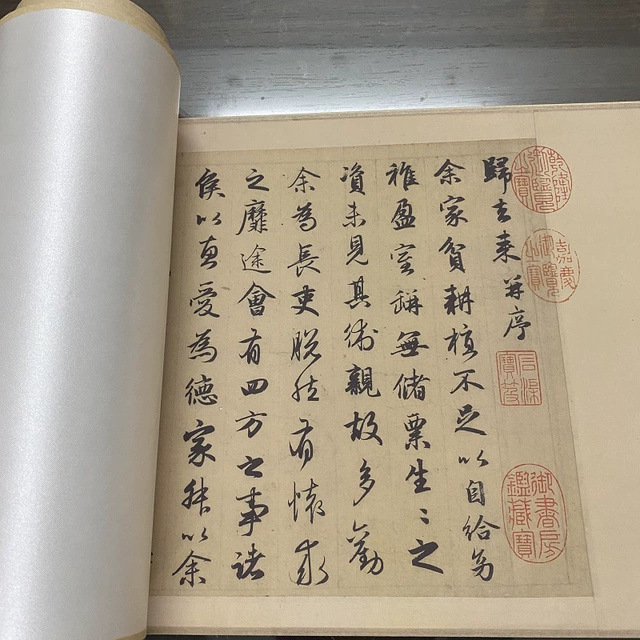 乾隆御覽之寶
嘉慶御覽之寶
石渠寶笈
御書房鑑藏寶
歸去来并序
余家貧耕植不足以自給幼
稚盈室缾無儲粟生〻之
資未見其術親故多勸
余為長吏脫然有懷求
之靡途會有四方之事諸
侯以惠愛為德家叔以余